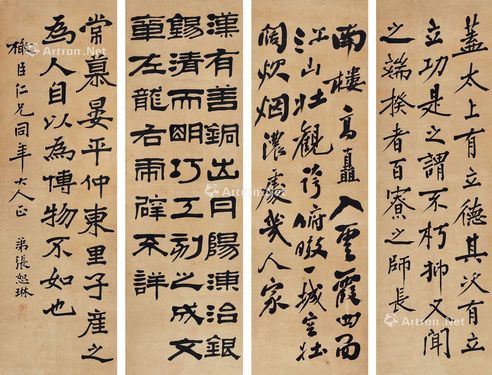 蓋太上有立德其次有立
立功是之謂不朽抑又聞
之端揆者百寮之師長
南樓高矗入雲霞四面
江山壯觀誇俯瞰一城空壯
闊炊烟濃處幾人家
漢有善銅出丹陽湅治銀
錫清而明巧工刻之成文
章左龍右虎辟不詳
常慕晏平仲東里子產之
為人自以為博物不如也
臣仁兄同年大人正 弟張恕琳
Artron.Net
Artron.Net
Artron.Net
Artron.Net